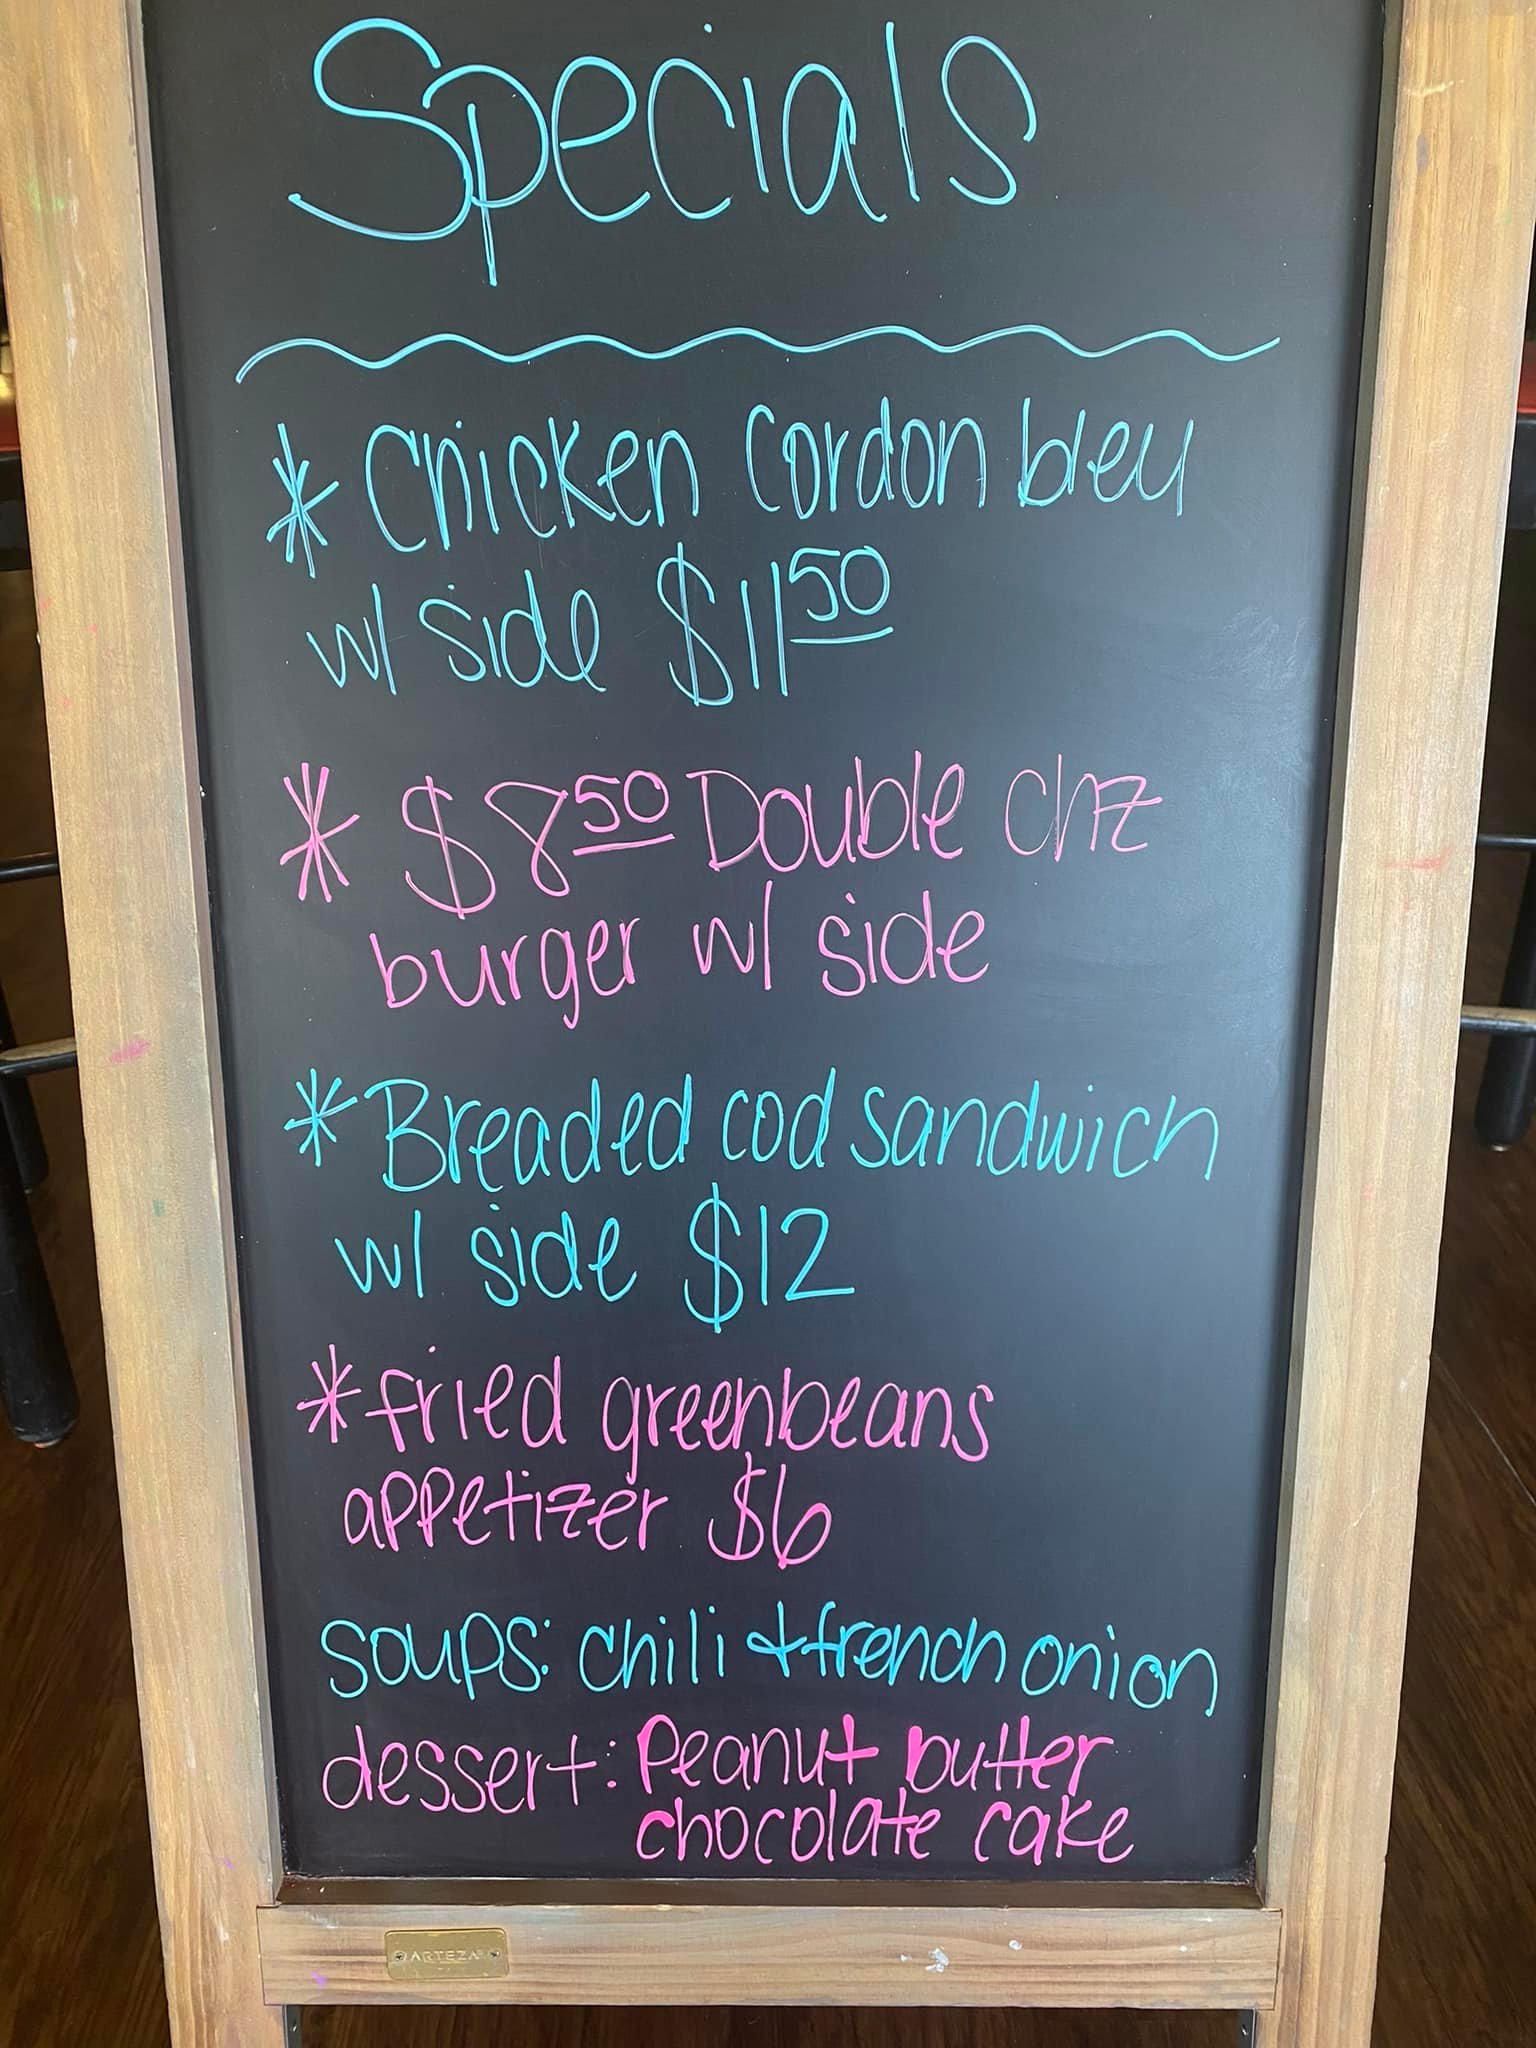 Specials
* Chicken Cordon bleu
w/ side $11.50
* $8.50 Double chz
burger w/ side
* Breaded cod sandwich
w/ side $12
* fried greenbeans
appetizer $6
soups: chili + french onion
dessert: Peanut butter
chocolate cake
ARTEZA